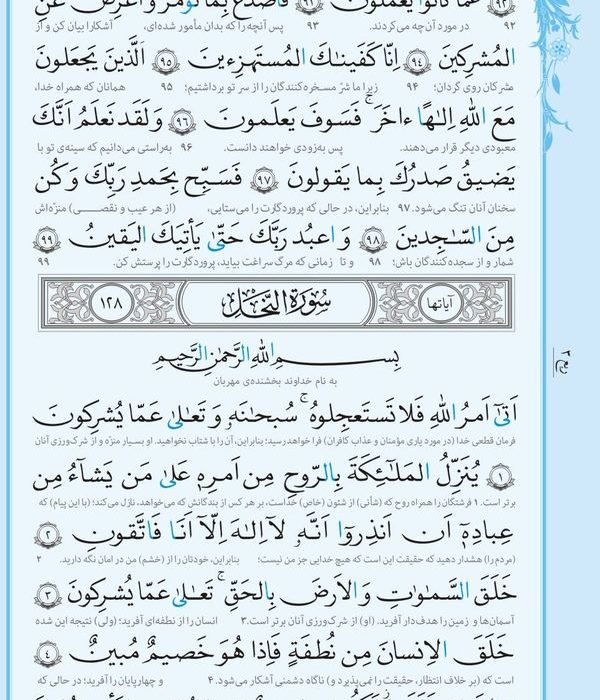 ٩٢ عَمّا كانوا يَعمَلونَ ٩٣ فَاصدَع بِما تُؤمَرُ وَ اَعرِض عَنِ
٩٢ در مورد آن‌چه می‌کردند. ٩٣ پس آنچه را که بدان مأمور شده‌ای، آشکارا بیان کن و از
المُشرِكينَ ٩٤ اِنّا كَفَيناكَ المُستَهزِءينَ ٩٥ اَلَّذينَ يَجعَلونَ
مشرکان روی گردان؛ ٩٤ زیرا ما شرّ مسخره‌کنندگان را از سر تو برداشتیم؛ ٩٥ همانان که همراه خدا،
مَعَ اللهِ اِلـٰهًا ءاخَرَ ۚ فَسَوفَ يَعلَمونَ ٩٦ وَ لَقَد نَعلَمُ اَنَّكَ
معبودی دیگر قرار می‌دهند. پس به‌زودی خواهند دانست. ٩٦ به‌راستی می‌دانیم که سینه‌ی تو با
يَضيقُ صَدرُكَ بِما يَقولونَ ٩٧ فَسَبِّح بِحَمدِ رَبِّكَ وَ كُن
سخنان آنان تنگ می‌شود. ٩٧ بنابراین، در حالی که پروردگارت را می‌ستایی، (از هر عیب و نقصی) منزّه‌اش
مِنَ السّـٰجِدينَ ٩٨ وَ اعبُد رَبَّكَ حَتّىٰ يَأتِيَكَ اليَقينُ ٩٩
شمار و از سجده‌کنندگان باش؛ ٩٨ و تا زمانی که مرگ سراغت بیاید، پروردگارت را پرستش کن. ٩٩
آیاتها سُورَةُ النَّحْلِ ١٢٨
بِسـمِ اللهِ الرَّحمـٰنِ الرَّحيمِ
به نام خداوند بخشنده‌ی مهربان
اَتىٰٓ اَمرُ اللهِ فَلا تَستَعجِلوهُ ۚ سُبحـٰنَهٗ وَ تَعـٰلىٰ عَمّا يُشرِكونَ
فرمان قطعی خدا (در مورد یاری مؤمنان و عذاب کافران) فرا خواهد رسید؛ بنابراین، آن را با شتاب نخواهید. او بسیار منزّه و از شرک‌ورزی آنان
١ يُنَزِّلُ المَلـٰٓئِكَةَ بِالرّوحِ مِن اَمرِهٖ عَلىٰ مَن يَشآءُ مِن
برتر است. ١ فرشتگان را همراه روح که (شأنی) از شئون (خاص) خداست، بر هر کس از بندگانش که می‌خواهد، نازل می‌کند؛ (با این پیام) که
عِبادِهٖٓ اَن اَنذِروٓا اَنَّهٗ لآ اِلـٰهَ اِلّآ اَنَا فَاتَّقونِ ٢
(مردم را) هشدار دهید که حقیقت این است که هیچ خدایی جز من نیست؛ بنابراین، خودتان را از (خشم) من در امان نگه دارید. ٢
خَلَقَ السَّمـٰوٰتِ وَ الاَرضَ بِالحَقِّ ۚ تَعـٰلىٰ عَمّا يُشرِكونَ ٣
آسمان‌ها و زمین را هدف‌دار آفرید. (او) از شرک‌ورزی آنان برتر است. ٣ انسان را از نطفه‌ای آفرید؛ (ولی) نتیجه این شده
خَلَقَ الاِنسانَ مِن نُطفَةٍ فَاِذا هُوَ خَصيمٌ مُبينٌ ٤
است که (بر خلاف انتظار، حقیقت را نمی‌پذیرد و) ناگاه دشمنی آشکار می‌شود. ٤ و چهارپایان را آفرید؛ در حالی که